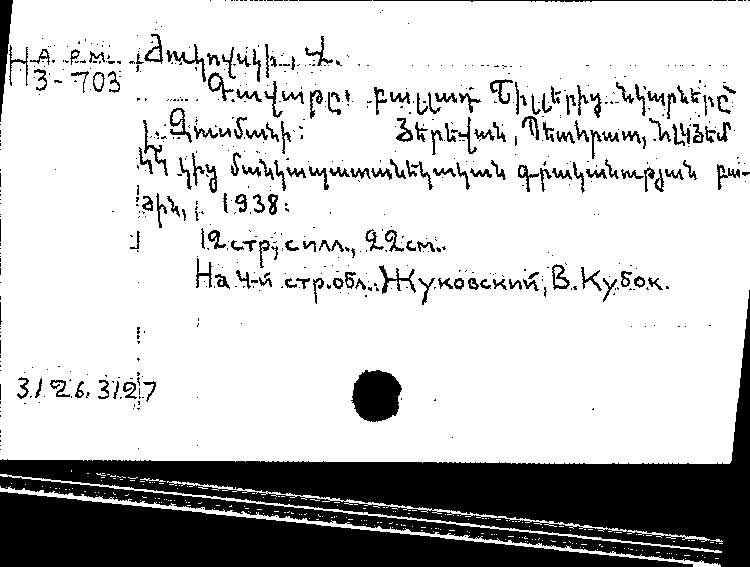 Арм. Ժուկովսկի, Վ.
Н 3-703 Գավաթը։ բալլադ Շիլլերից. նկարները
Լ. Գուամանի։ Յերեվան, Պետհրատ, ՀԼԿՅԵՄ
ԿԿ կից մանկապատանեկական գրականության բա-
ժին, 1938։
12 стр, с илл., 22 см.
На 4-й стр. обл.: Жуковский, В. Кубок.
3126.3127